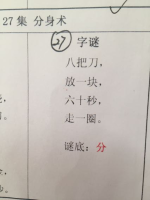 27集 分身术
27 字谜
八把刀,
放一块,
六十秒,
走一圈。
谜底：分